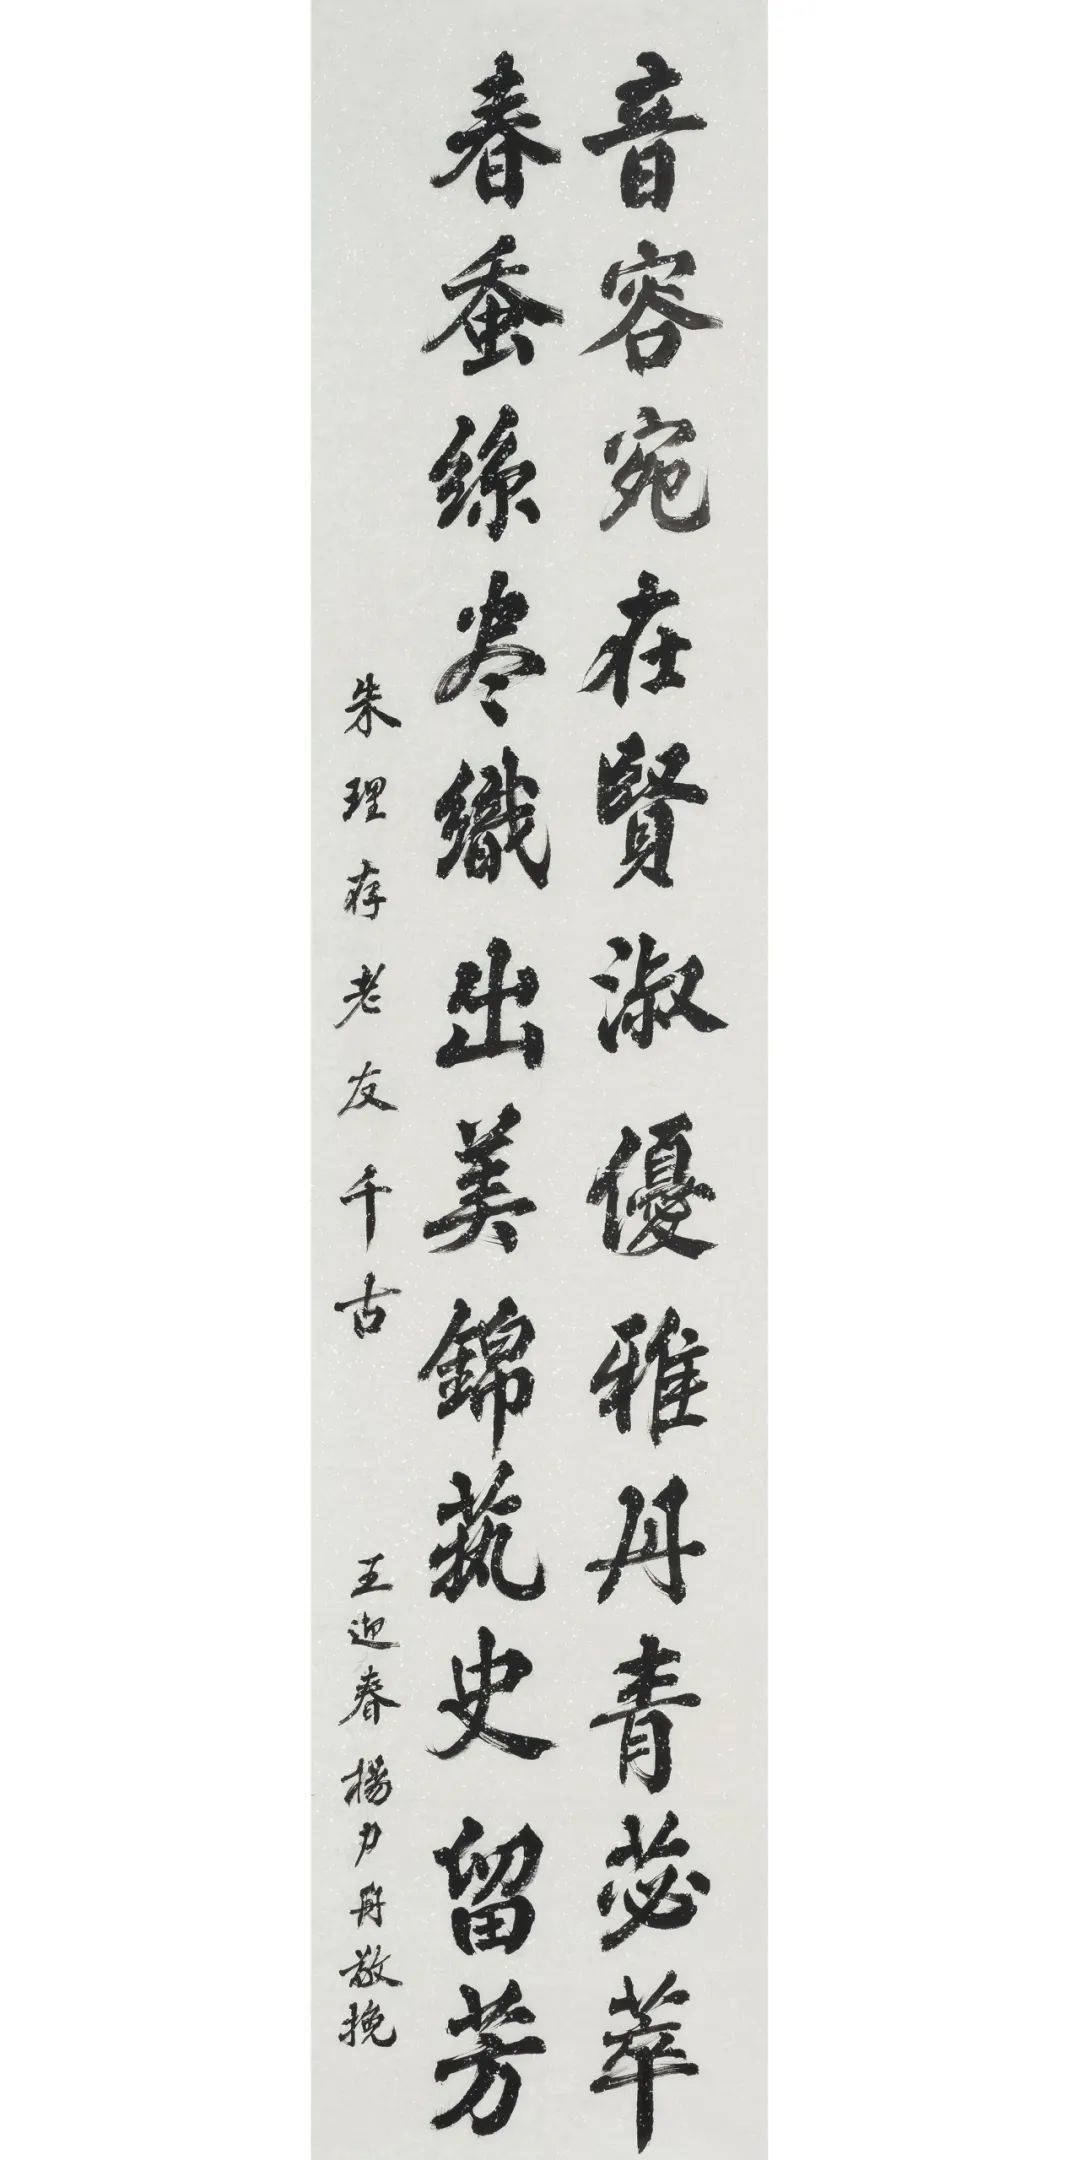 音容宛在賢淑優雅丹青苾萃
春蚕絲尽織出美錦藝史留芳
朱理存老友千古
王迎春楊力舟敬挽